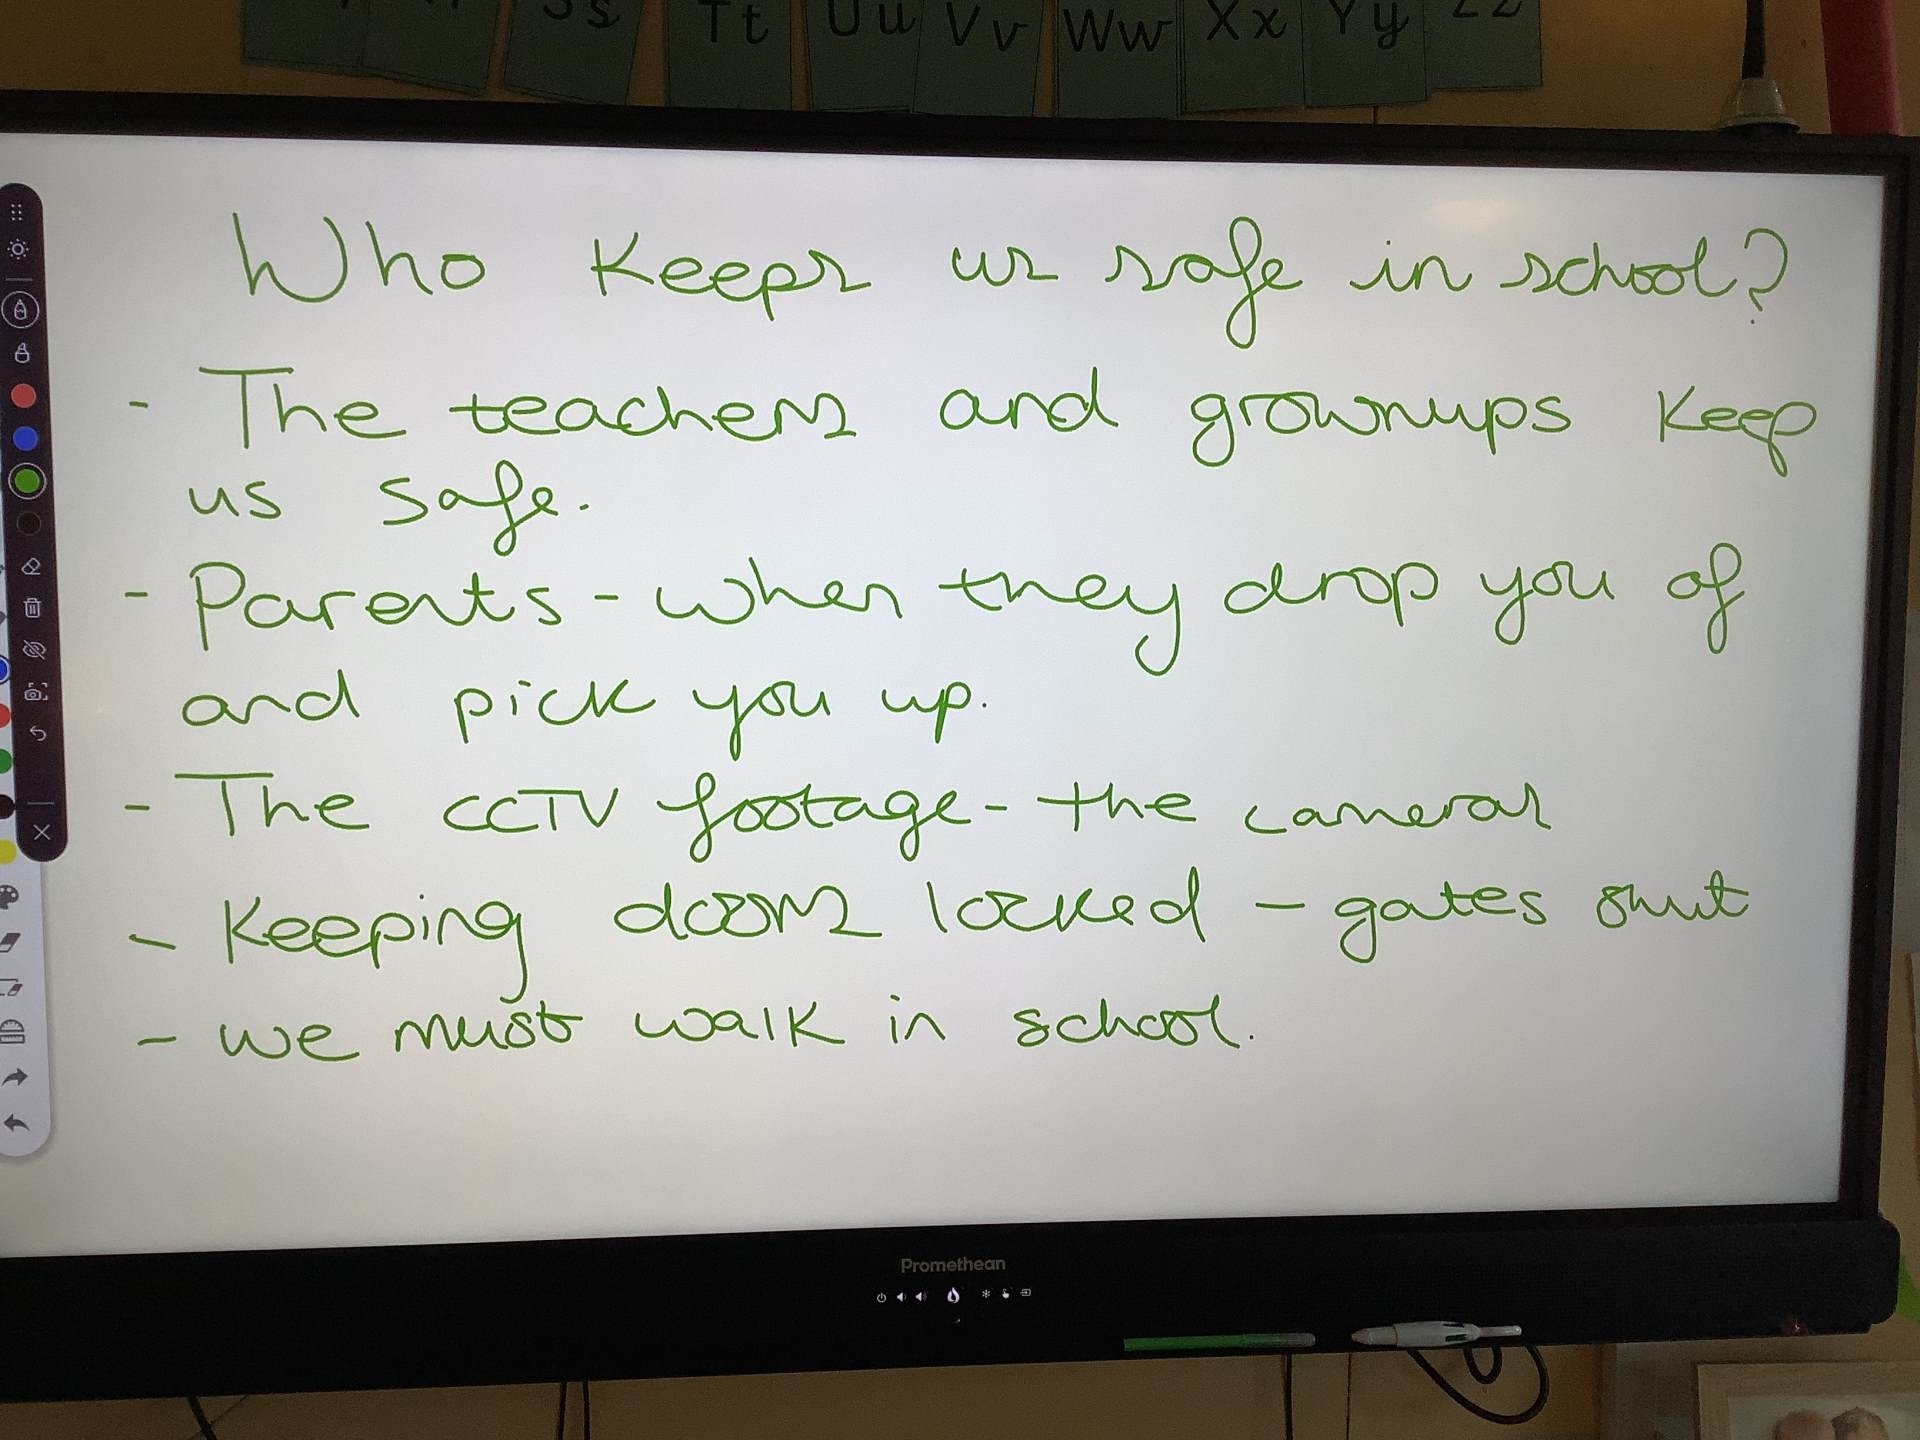 Ss Tt Uu Vv Ww Xx Yy Zz
Who keeps us safe in school?
- The teachers and grownups keep
us safe.
- Parents - when they drop you of
and pick you up.
- The CCTV footage - the cameras
- Keeping doors locked - gates shut
- we must walk in school.
Promethean